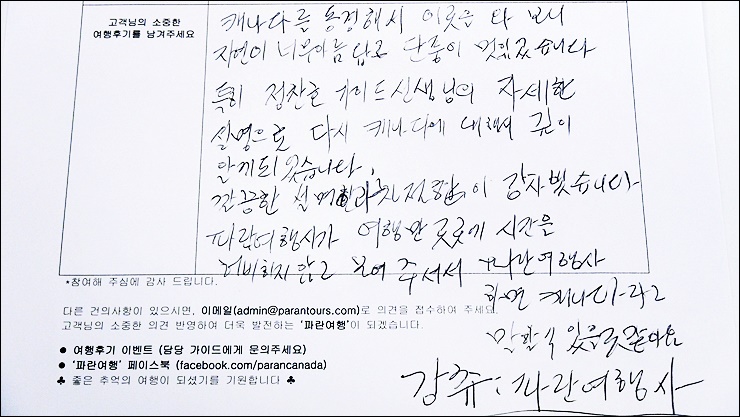 고객님의 소중한
여행후기를 남겨주세요
캐나다를 동경해서 이곳을 와 보니
자연이 너무아름답고 단풍이 멋있었습니다
특히 정찬호 가이드선생님의 자세한
설명으로 다시 캐나다에 대해서 깊이
알게되었습니다.
깔끔한 설명과 친절함이 감사했습니다
파란여행사가 여행만 시간은
허비하지않고 보여 주셔서 파란여행사
*참여해 주심에 감사 드립니다.
하면 캐나다라고
말할수 있을것같아요
강추: 파란여행사
다른 건의사항이 있으시면, 이메일(admin@parantours.com)로 의견을 접수하여 주세요.
고객님의 소중한 의견 반영하여 더욱 발전하는 '파란여행'이 되겠습니다.
● 여행후기 이벤트 (담당 가이드에게 문의주세요)
● '파란여행' 페이스북 (facebook.com/parancanada)
♣ 좋은 추억의 여행이 되셨기를 기원합니다 ♣